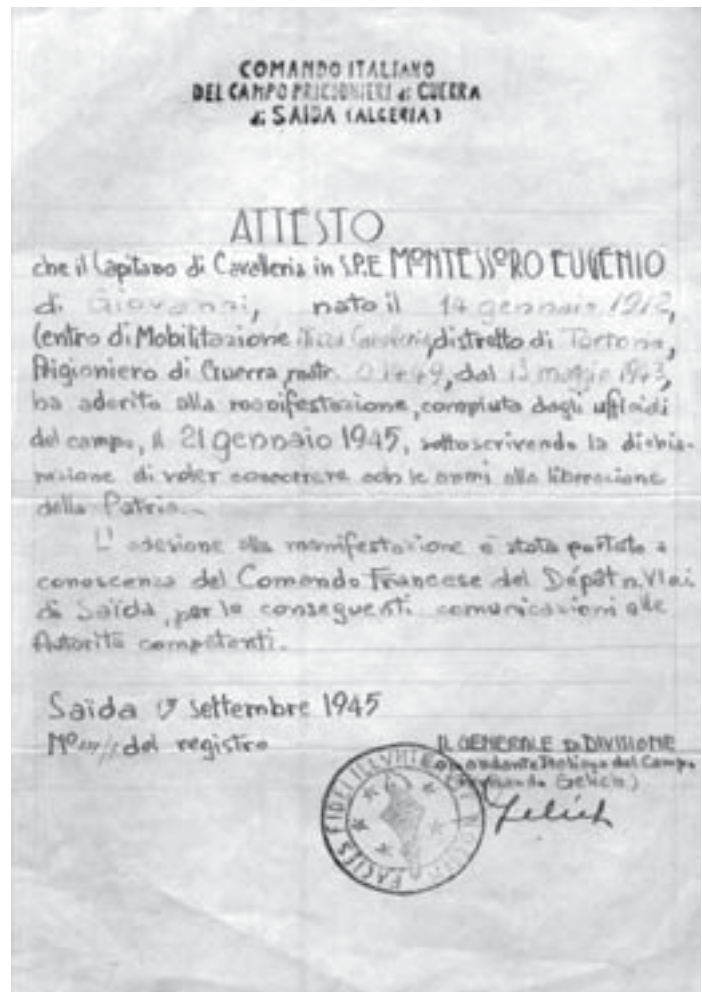 COMANDO ITALIANO
DEL CAMPO PRIGIONIERI di GUERRA
di SAIDA (ALGERIA)
ATTESTO
che il Capitano di Cavalleria in S.P.E MONTESSORO EUGENIO
di Giovanni, nato il 14 gennaio 1912,
Centro di Mobilitazione Cavalleria, distretto di Tortona,
Prigioniero di Guerra, matr. 01449, dal 13 maggio 1943,
ha aderito alla manifestazione, compiuta dagli ufficiali
del campo, il 21 gennaio 1945, sottoscrivendo la dichia-
razione di voler concorrere con le armi alla liberazione
della Patria.
L'adesione alla manifestazione è stata portata a
conoscenza del Comando Francese del Dépôt n. VI
di Saïda, per le conseguenti comunicazioni alle
Autorità competenti.
Saïda settembre 1945
Nº del registro
IL GENERALE DI DIVISIONE
Comandante Italiano del Campo
Gelich